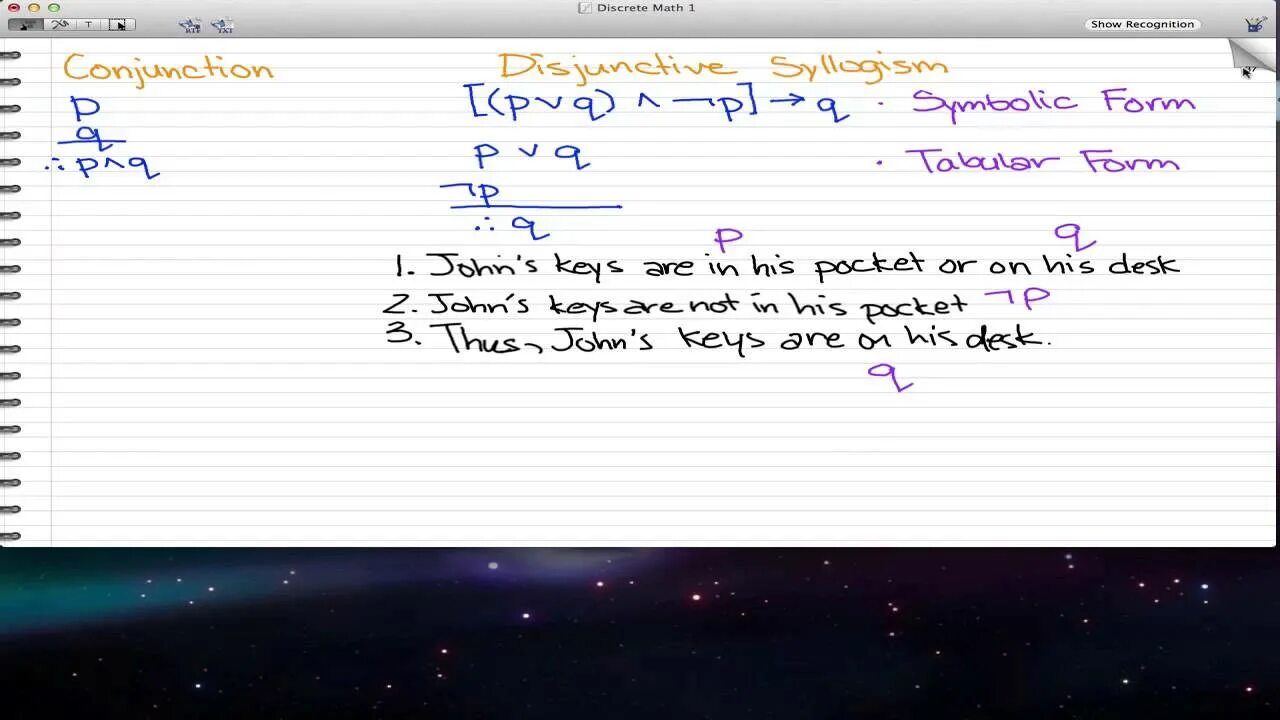 Discrete Math 1
T
RTF
TXT
Show Recognition
Conjunction
p
q
∴ p∧q
Disjunctive Syllogism
[(p∨q) ∧ ¬p] → q · Symbolic Form
p ∨ q · Tabular Form
¬p
∴ q
p q
1. John's keys are in his pocket or on his desk
2. John's keys are not in his pocket ¬p
3. Thus, John's keys are on his desk.
q